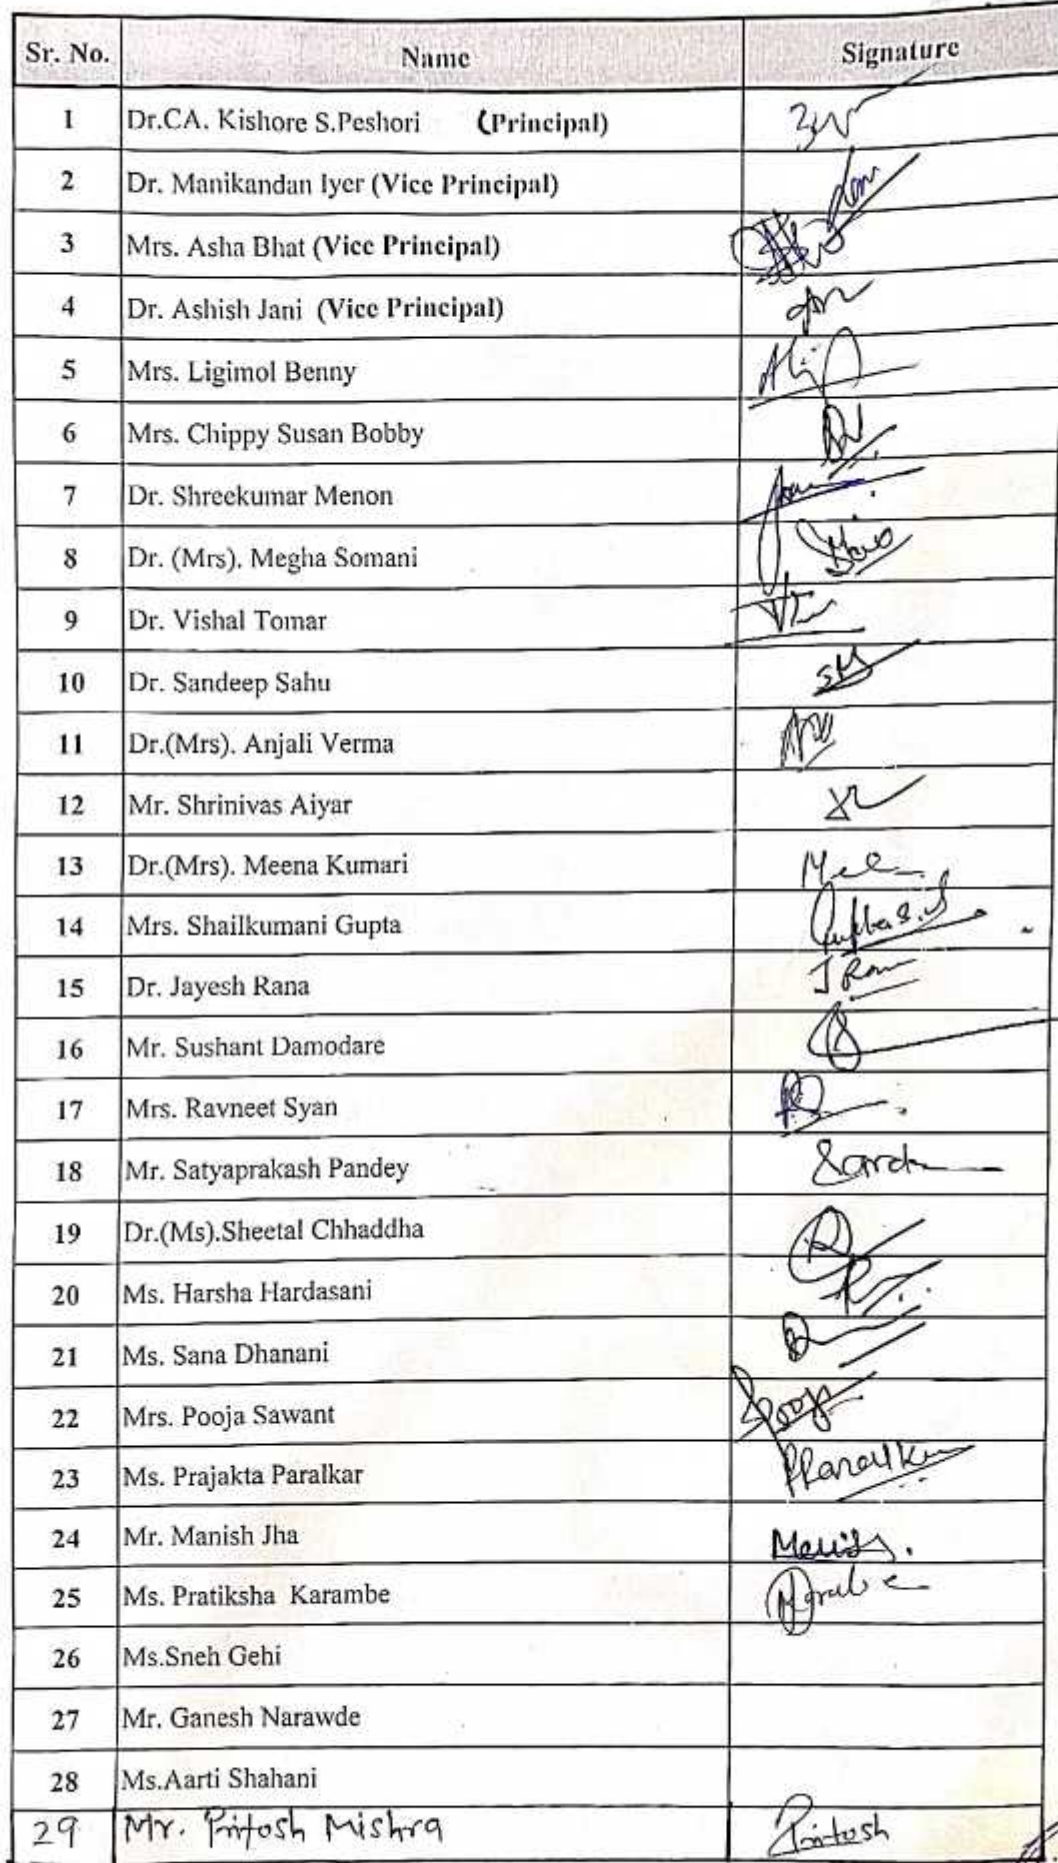 Sr. No. Name Signature
1 Dr.CA. Kishore S.Peshori (Principal)
2 Dr. Manikandan Iyer (Vice Principal)
3 Mrs. Asha Bhat (Vice Principal)
4 Dr. Ashish Jani (Vice Principal)
5 Mrs. Ligimol Benny
6 Mrs. Chippy Susan Bobby
7 Dr. Shreekumar Menon
8 Dr. (Mrs). Megha Somani
9 Dr. Vishal Tomar
10 Dr. Sandeep Sahu
11 Dr.(Mrs). Anjali Verma
12 Mr. Shrinivas Aiyar
13 Dr.(Mrs). Meena Kumari
14 Mrs. Shailkumani Gupta Gupta S.
15 Dr. Jayesh Rana
16 Mr. Sushant Damodare
17 Mrs. Ravneet Syan
18 Mr. Satyaprakash Pandey
19 Dr.(Ms).Sheetal Chhaddha
20 Ms. Harsha Hardasani
21 Ms. Sana Dhanani
22 Mrs. Pooja Sawant Pooja
23 Ms. Prajakta Paralkar
24 Mr. Manish Jha
25 Ms. Pratiksha Karambe
26 Ms.Sneh Gehi
27 Mr. Ganesh Narawde
28 Ms.Aarti Shahani
29 Mr. Pritosh Mishra Pritosh